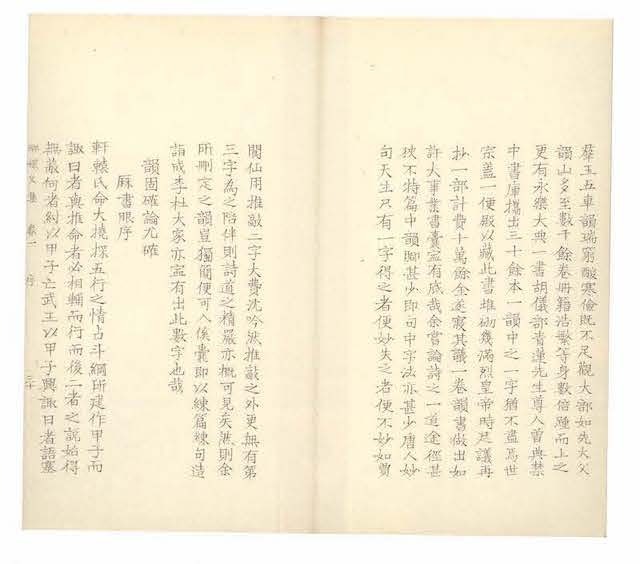 羣玉五車韻瑞窮酸寒儉既不足觀大部如先大父
韻山多至數千餘卷冊籍浩繁等身數倍踵而上之
更有永樂大典一書胡儀部青蓮先生尊人曾典禁
中書庫攜出三十餘本一韻中之一字猶不盡焉世
宗蓋一便殿以藏此書堆砌幾滿烈皇帝時廷議再
抄一部計費十萬餘金遂寢其議一卷韻書做出如
許大事業書囊寧有底哉余嘗論詩之一道途徑甚
狹不特篇中韻腳甚少即句中字法亦甚少唐人妙
句天生只有一字得之者便妙失之者便不妙如賈
閬仙用推敲二字大費沈吟然推敲之外更無有第
三字為之陪伴則詩道之精嚴亦概可見矣然則余
所刪定之韻豈獨簡便可入傒囊即以練篇練句造
詣成李杜大家亦寧有出此數字也哉
韻固確論尤確
厤書眼序
軒轅氏命大撓探五行之情占斗綱所建作甲子而
諏日者與推命者必相輔而行而後二者之說始得
無敝何者紂以甲子亡武王以甲子興諏日者語塞
文集 卷一 序 三十